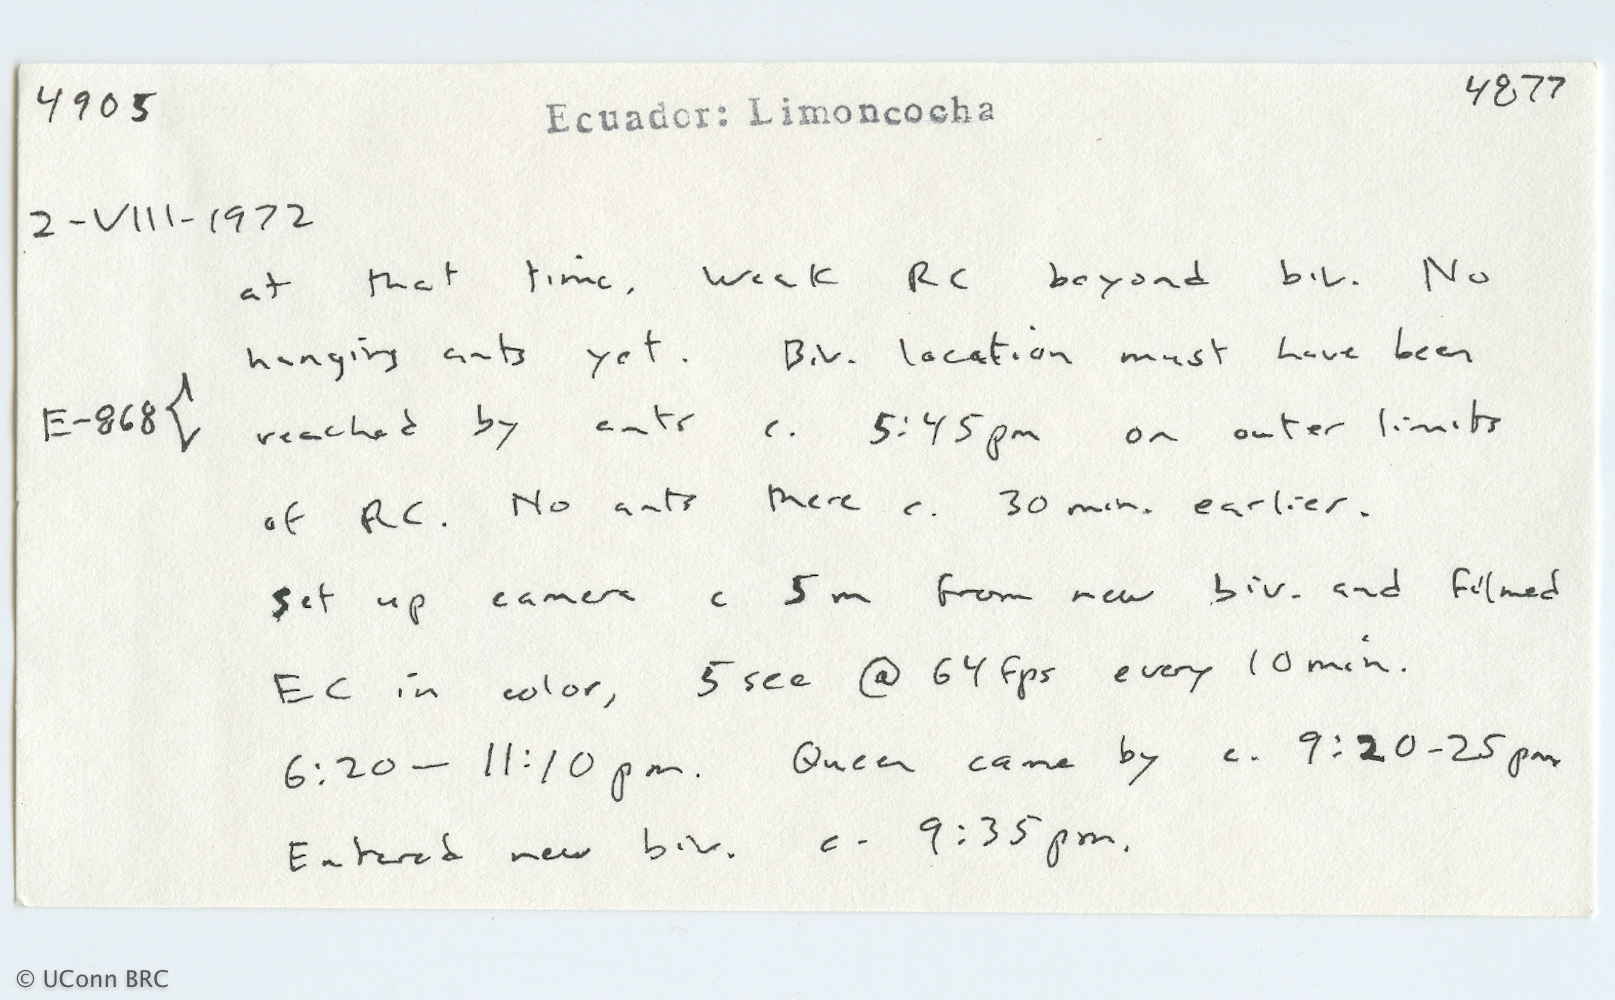 4905 Ecuador: Limoncocha 4877
2-VIII-1972
at that time. Weak RC beyond biv. No
hanging ants yet. Biv. location must have been
E-868{ reached by ants c. 5:45pm on outer limits
of RC. No ants there c. 30 min. earlier.
set up camera c 5 m from new biv. and filmed
EC in color, 5 sec @ 64 fps every 10 min.
6:20 — 11:10 pm. Queen came by c. 9:20-25pm
Entered new biv. c. 9:35pm.
© UConn BRC